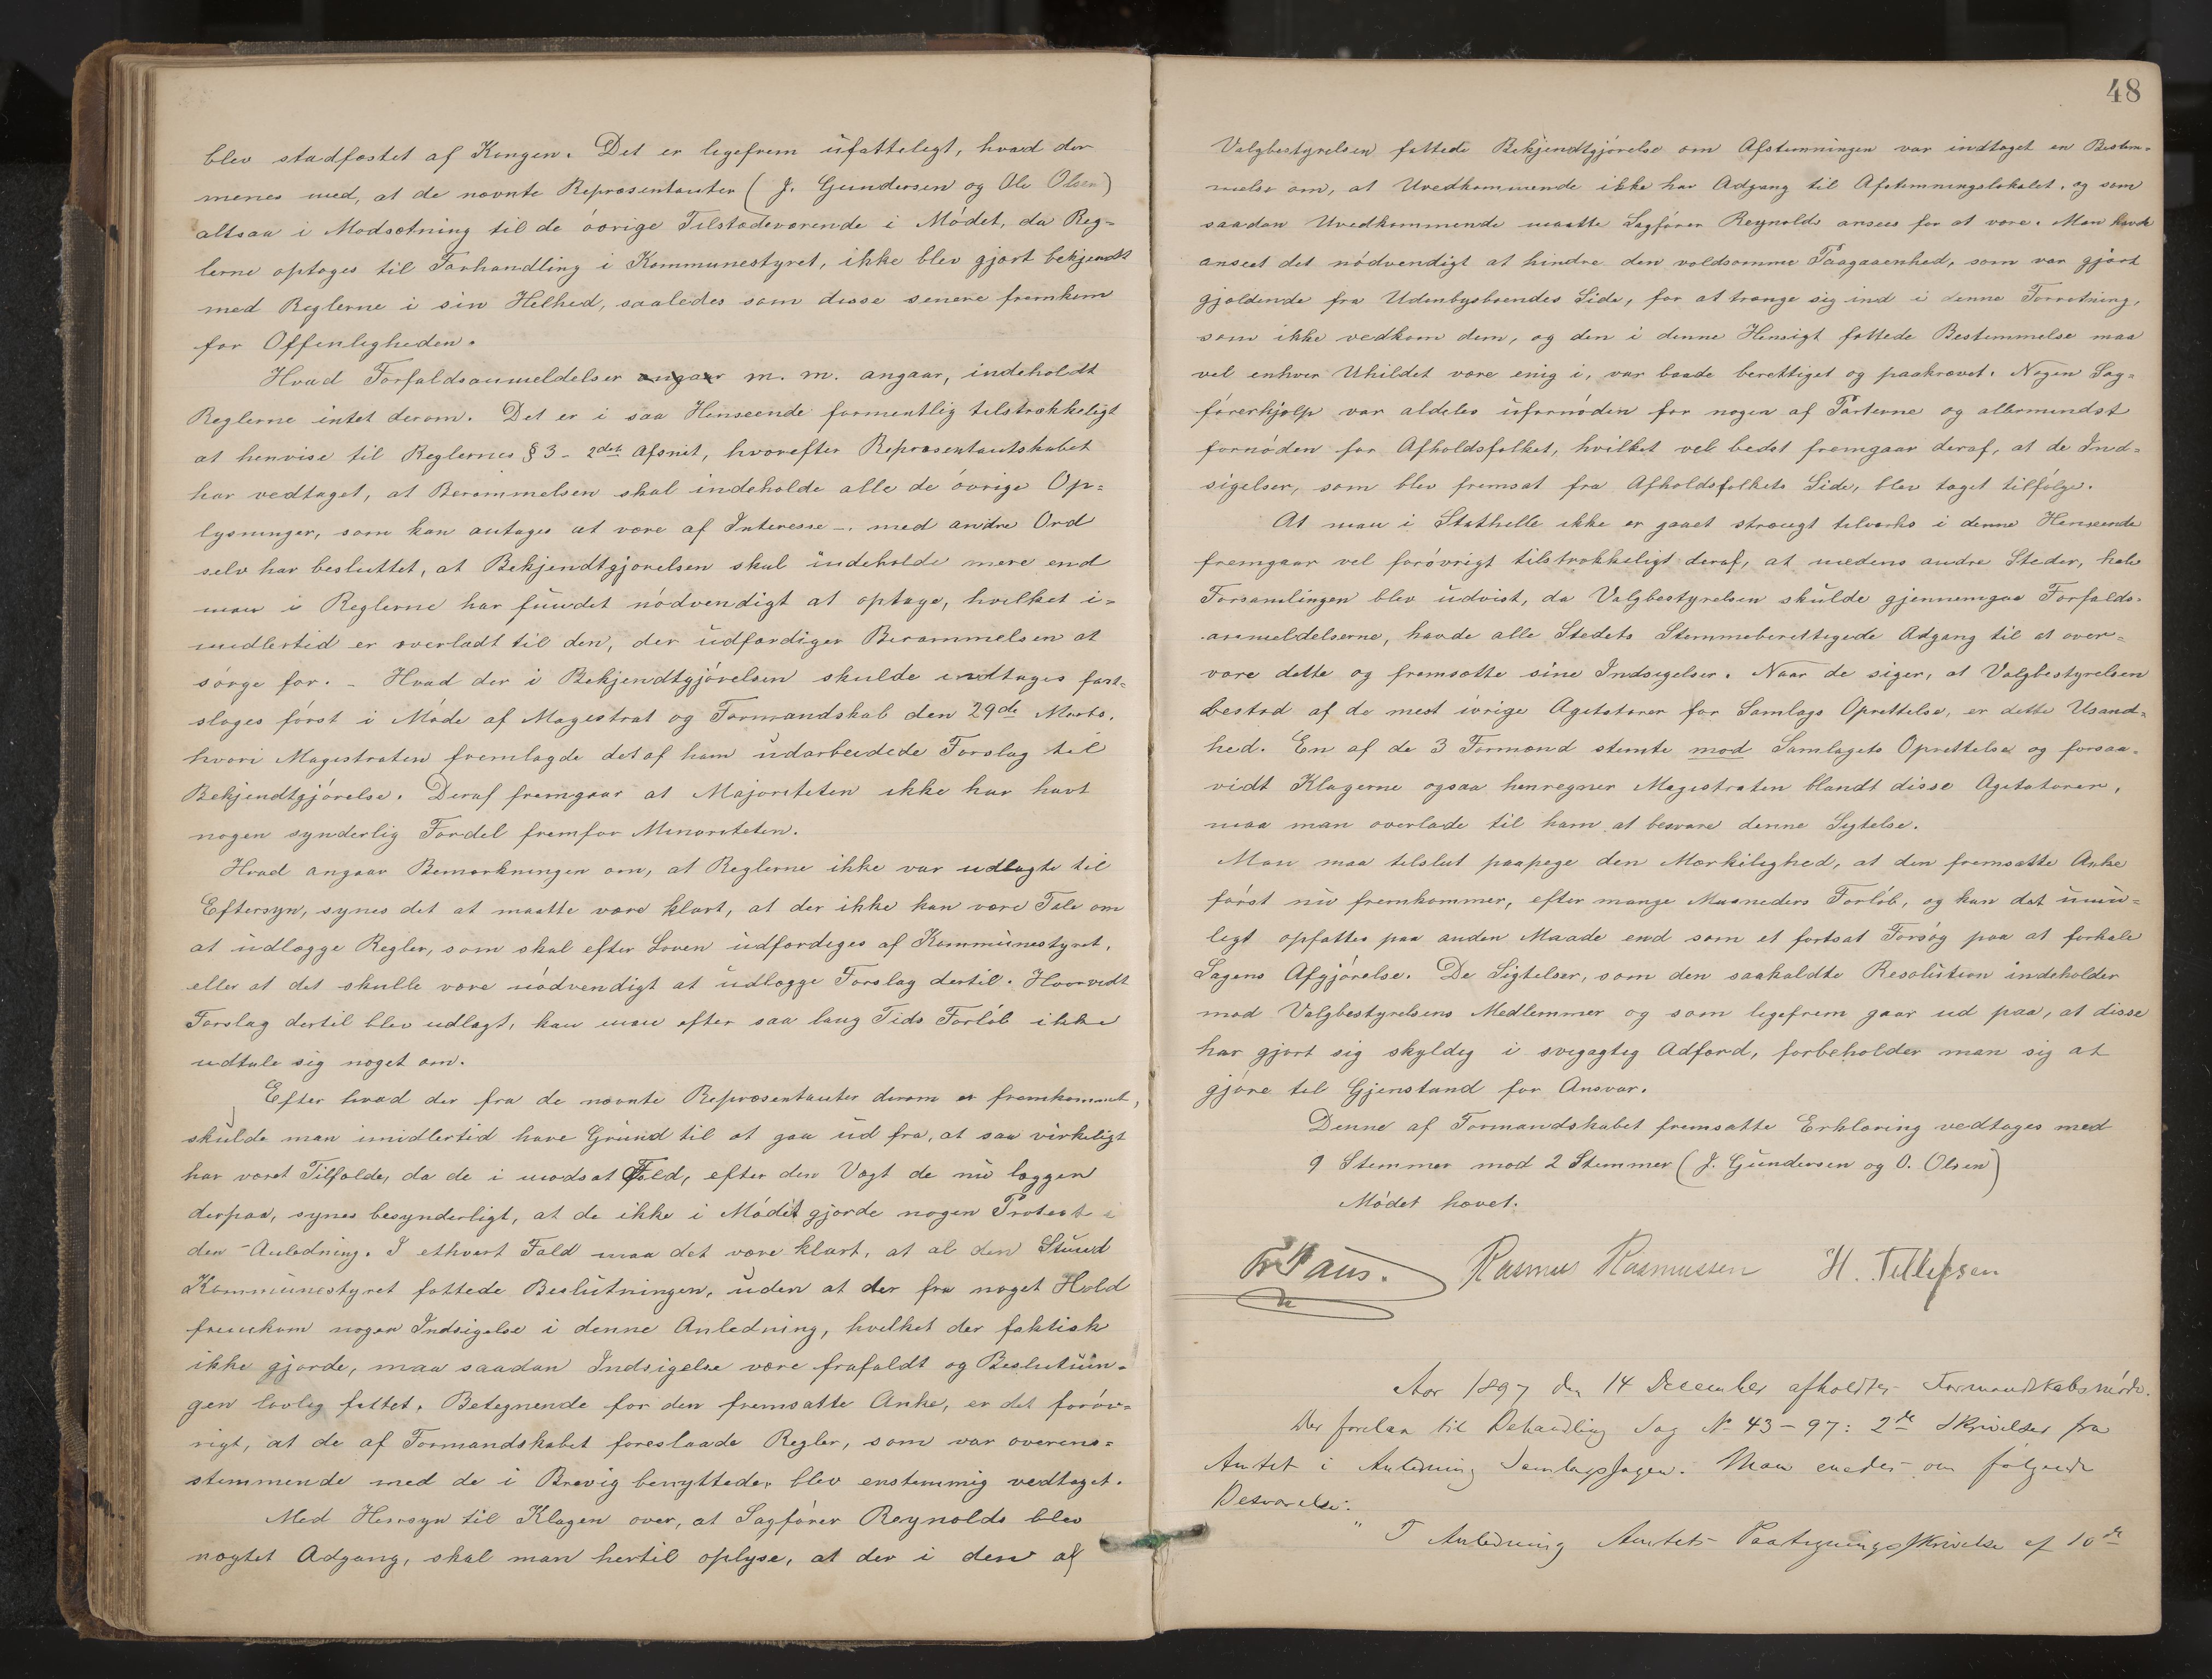 blev stadfæstet af Kongen. Det er ligefrem ufatteligt, hvad der
menes med, at de nævnte Repræsentanter (J. Gundersen og Ole Olsen)
altsaa i Modsætning til de øvrige Tilstedeværende i Mødet, da Reg-
lerne optoges til Forhandling i Kommunestyret, ikke blev gjort bekjendt
med Reglerne i sin Helhed, saaledes som disse senere fremkom
for Offenligheden.
Hvad Forfaldsanmeldelser angaar m. m. angaar, indeholdt
Reglerne intet derom. Det er i saa Henseende formentlig tilstrækkeligt
at henvise til Reglernes § 3 - 2det Afsnit, hvorefter Repræsentantskabet
har vedtaget, at Berammelsen skal indeholde alle de øvrige Op=
lysninger, som kan antages at være af Interesse -. med andre Ord
selv har besluttet, at Bekjendtgjørelsen skal indeholde mere end
man i Reglerne har fundet nødvendigt at optage, hvilket i=
midlertid er overladt til den, der udfærdiger Berammelsen at
sørge for. - Hvad der i Bekjendtgjørelsen skulde indtages fast=
sloges først i Møde af Magistrat og Formandskab den 29de Marts.
hvori Magistraten fremlagde det af ham udarbeidede Forslag til
Bekjendtgjørelse. Deraf fremgaar at Majoriteten ikke har havt
nogen synderlig Fordel fremfor Minoriteten.
Hvad angaar Bemærkningen om, at Reglerne ikke var udlagte til
Eftersyn, synes det at maatte være klart, at der ikke kan være Tale om
at udlægge Regler, som skal efter Loven udfærdiges af Kommunestyret,
eller at det skulle være nødvendigt at udlægge Forslag dertil. Hvorvidt
Forslag dertil blev udlagt, kan man efter saa lang Tids Forløb ikke
udtale sig noget om.
Efter hvad der fra de nævnte Repræsentanter derom er fremkommet,
skulde man imidlertid have Grund til at gaa ud fra, at saa virkeligt
har været Tilfælde, da de i modsat Fald, efter den Vægt de nu lægger
derpaa, synes besynderligt, at de ikke i Mødet gjorde nogen Protest i
den Anledning. I ethvert Fald maa det være klart, at al den Stund
Kommunestyret fattede Beslutningen, uden at der fra noget Hold
fremkom nogen Indsigelse i denne Anledning, hvilket der faktisk
ikke gjorde, maa saadan Indsigelse være frafaldt og Beslutnin-
gen lovlig fattet. Betegnende for den fremsatte Anke, er det forøv=
rigt, at de af Formandskabet foreslaade Regler, som var overens=
stemmende med de i Brevig benyttede, blev enstemmig vedtaget.
Med Hensyn til Klagen over, at Sagfører Reynolds blev
nægtet Adgang, skal man hertil oplyse, at der i den af
48
Valgbestyrelsen fattede Bekjendtgjørelse om Afstemningen var indtaget en Bestem=
melse om, at Uvedkommende ikke har Adgang til Afstemningslokalet, og som
saadan Uvedkommende maatte Sagfører Reynolds ansees for at være. Man havde
anseet det nødvendigt at hindre den voldsomme Paagaaenhed, som var gjort
gjældende fra Udenbysboendes Side, for at trænge sig ind i denne Forretning,
som ikke vedkom dem, og den i denne Hensigt fattede Bestemmelse maa
vel enhver Uhildet være enig i, var baade berettiget og paakrævet. Nogen Sag=
førerhjælp var aldeles ufornøden for nogen af Parterne og allermindst
fornøden for Afholdsfolket, hvilket vel bedst fremgaar deraf, at de Ind=
sigelser, som blev fremsat fra Afholdsfolkets Side, blev taget tilfølge.
At man i Stathelle ikke er gaaet strængt tilværks i denne Henseende
fremgaar vel forøvrigt tilstrækkeligt deraf, at medens andre Steder, hele
Forsamlingen blev udvist, da Valgbestyrelsen skulde gjennemgaa Forfalds-
anmeldelserne, havde alle Stedets Stemmeberettigede Adgang til at over=
være dette og fremsætte sine Indsigelser. Naar de siger, at Valgbestyrelsen
bestod af de mest ivrige Agitatorer for Samlags Oprettelse, er dette Usand=
hed. En af de 3 Formænd stemte mod Samlagets Oprettelse og forsaa-
vidt Klagerne ogsaa henregner Magistraten blandt disse Agitatorer,
maa man overlade til ham at besvare denne Sigtelse.
Man maa tilslut paapege den Mærkelighed, at den fremsatte Anke
først nu fremkommer, efter mange Maaneders Forløb, og kan det umu=
ligt opfattes paa anden Maade end som et fortsat Forsøg paa at forhale
Sagens Afgjørelse. De Sigtelser, som den saakaldte Resolution indeholder
mod Valgbestyrelsens Medlemmer og som ligefrem gaar ud paa, at disse
har gjort sig skyldig i svigagtig Adfærd, forbeholder man sig at
gjøre til Gjenstand for Ansvar.
Denne af Formandskabet fremsatte Erklæring vedtages med
9 Stemmer mod 2 Stemmer (J. Gundersen og O. Olsen)
Mødet hævet.
Fr Paus. Rasmus Rasmussen H. Tellefsen
Aar 1897 den 14 December afholdtes Formandskabsmøde.
Der forelaa til Behandling Sag No 43-97: 2de Skrivelser fra
Amtet i Anledning Samlagssagen. Man enedes om følgende
Besvarelse:
" I Anledning Amtets Paategningsskrivelse af 10de